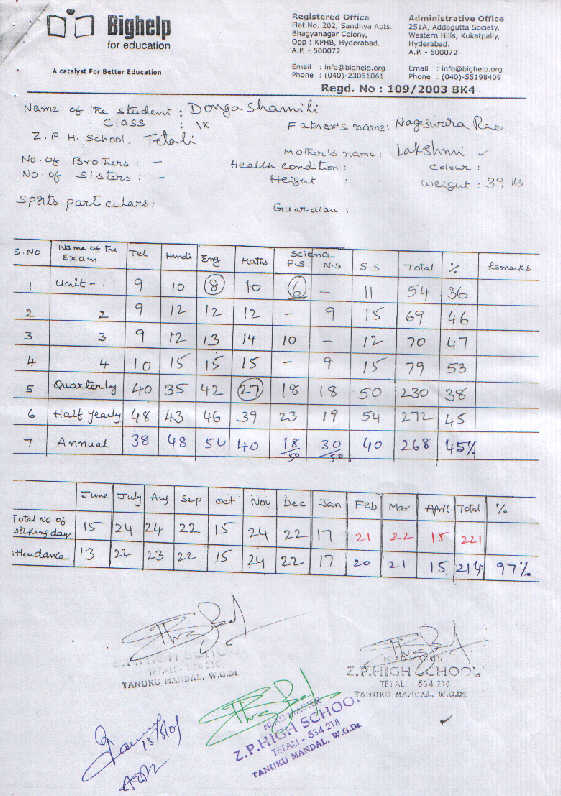 Bighelp
for education
A catalyst For Better Education
Registered Office
Flat No. 202, Sandhya Apts.
Bhagyanagar Colony,
Opp : KPHB, Hyderabad.
A.P. - 500072
Email : info@bighelp.org
Phone : (040)-23051061
Administrative Office
251A, Addagutta Society,
Western Hills, Kukatpally,
Hyderabad.
A.P. - 500072
Email : info@bighelp.org
Phone : (040)-55198409
Regd. No : 109/2003 BK4
Name of the student : Donga Shamili
Class : IX
Father's name: Nageswara Rao
Z.P.H. School, Tetali
Mother's name: Lakshmi -
No. of Brothers : -
Health condition :
Colour :
No. of Sisters : -
Height :
Weight : 39 Ks
Sports particulars :
Guardian :
S.NO Name of the Exam Tel Hindi Eng Maths Science P.S N.S S.S Total % Remarks
1 Unit - 1 9 10 8 10 6 - 11 54 36
2 2 9 12 12 12 - 9 15 69 46
3 3 9 12 13 14 10 - 12 70 47
4 4 10 15 15 15 - 9 15 79 53
5 Quarterly 40 35 42 27 18 18 50 230 38
6 Half yearly 48 43 46 39 23 19 54 272 45
7 Annual 38 48 54 40 18/50 30/50 40 268 45%
June July Aug Sep Oct Nov Dec Jan Feb Mar April Total %
Total No of working days 15 24 24 22 15 24 22 17 21 22 15 221
Attendance 13 22 23 22 15 24 22 17 20 21 15 214 97%
Z.P.HIGH SCHOOL
TETALI - 534 218
TANUKU MANDAL, W.G.Dt
Z.P.HIGH SCHOOL
TETALI - 534 218
TANUKU MANDAL, W.G.Dt
Z.P.HIGH SCHOOL
TETALI - 534 218
TANUKU MANDAL, W.G.Dt